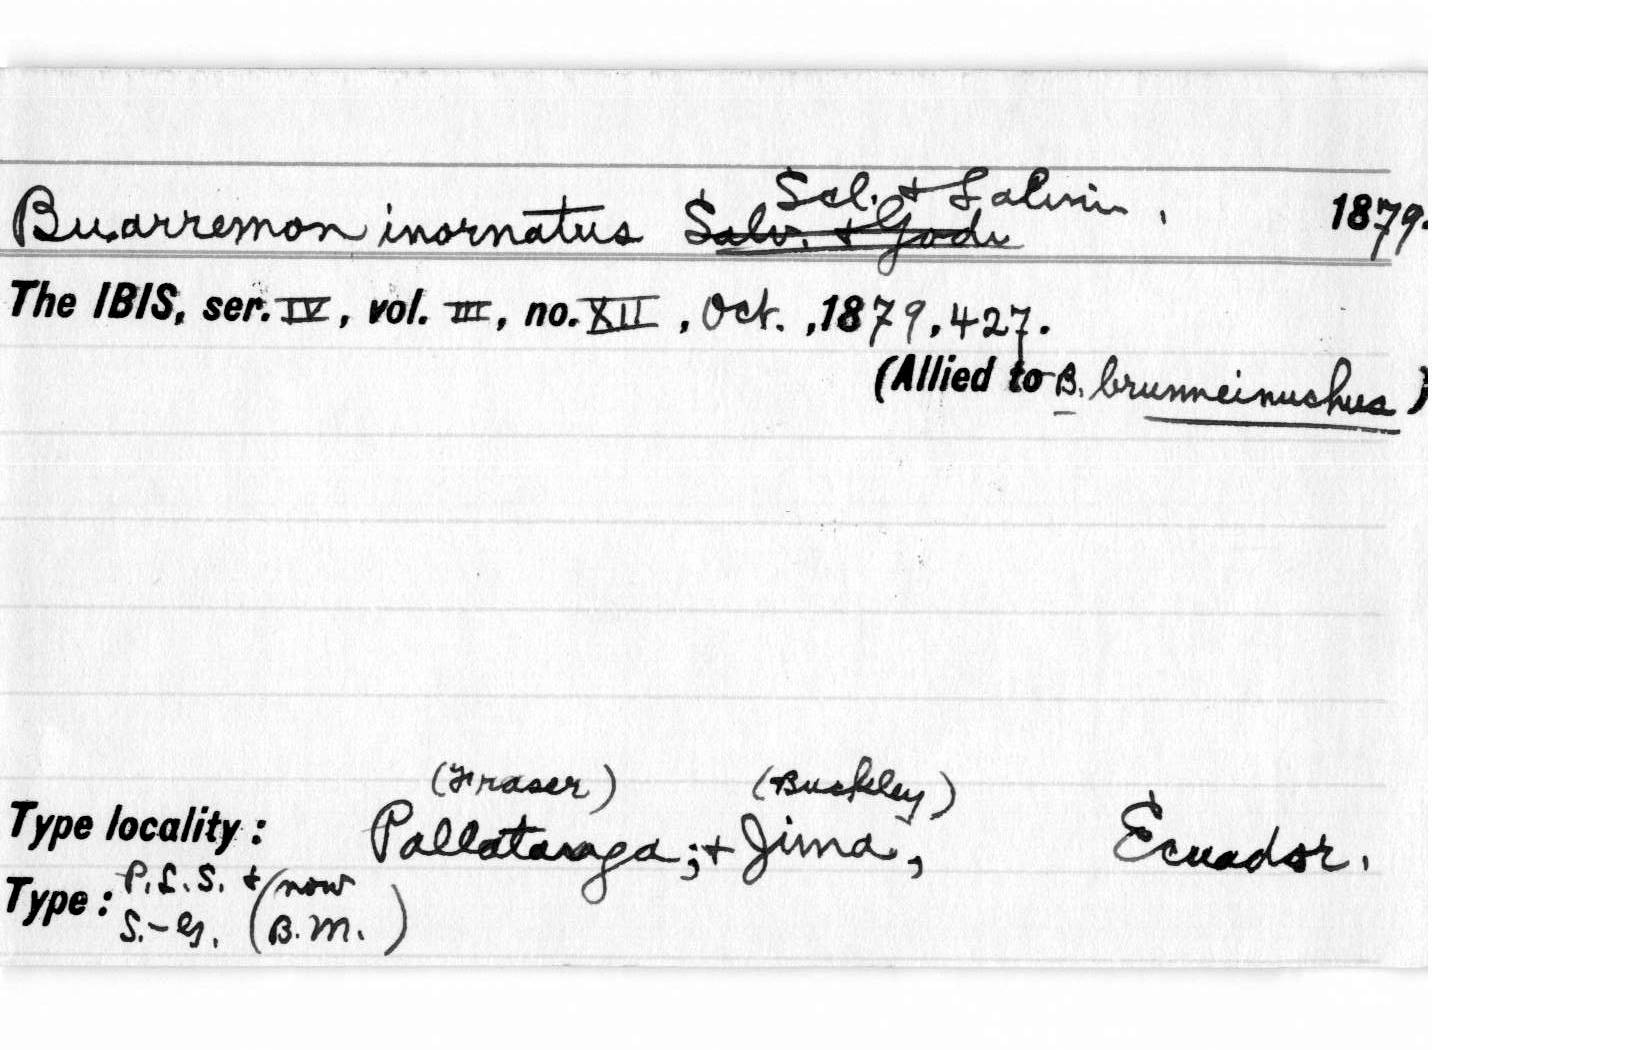 Scl. & Salvin.
Buarremon inornatus Salv. & Godn 1879.
The IBIS, ser. IV, vol. III, no. XII, Oct., 1879, 427.
(Allied to B. brunneinuchus)
(Fraser) (Buckley)
Type locality: Pallatanga; & Jima, Ecuador.
Type: P.L.S. & (now
S.-G. B.M.)